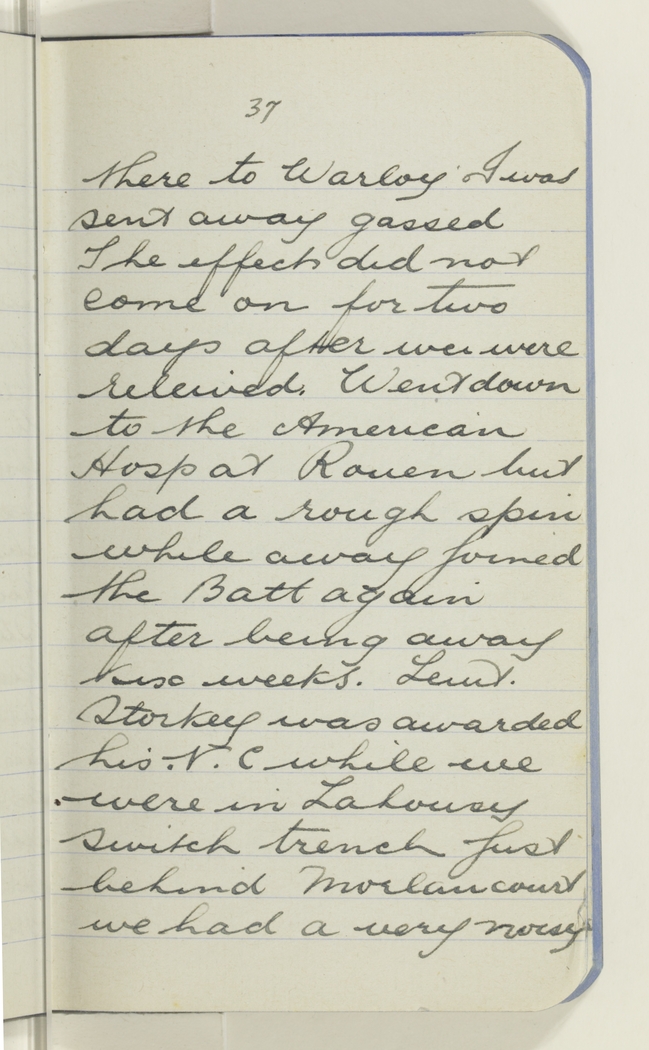 37
there to Warloy I was
sent away gassed
The effects did not
come on for two
days after we were
releived. Went down
to the American
Hosp at Rouen but
had a rough spin
while away joined
the Batt again
after being away
six weeks. Leut.
Storkey was awarded
his V. C while we
were in Lahousy
switch trench Just
behind Morlancourt
we had a very noisy